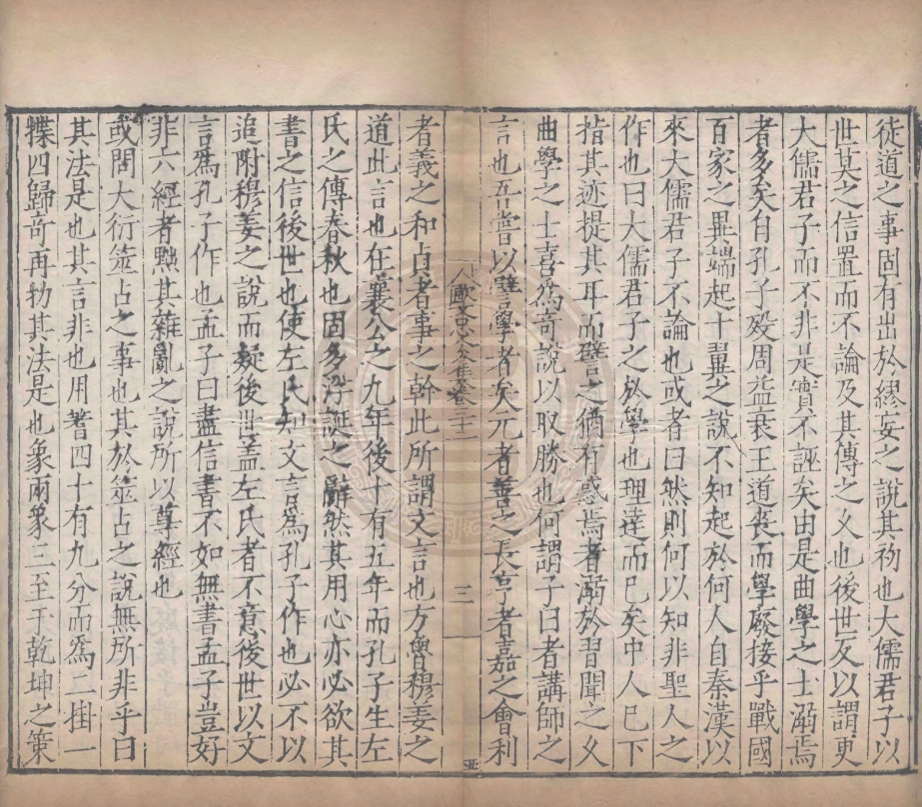 徒道之事固有出於繆妄之說其初也大儒君子以
世莫之信置而不論及其傳之乆也後世反以謂更
大儒君子而不非是實不誣矣由是曲學之士溺焉
者多矣自孔子殁周益衰王道喪而學廢接乎戰國
百家之異端起十翼之說不知起於何人自秦漢以
來大儒君子不論也或者曰然則何以知非聖人之
作也曰大儒君子之於學也理達而已矣中人已下
指其迹提其耳而譬之猶有惑焉者溺於習聞之乆
曲學之士喜爲奇說以取勝也何謂子曰者講師之
言也吾嘗以譬學者矣元者善之長亨者嘉之會利
歐文忠公集卷二十一
三
者義之和貞者事之幹此所謂文言也方魯穆姜之
道此言也在襄公之九年後十有五年而孔子生左
氏之傳春秋也固多浮誕之辭然其用心亦必欲其
書之信後世也使左氏知文言爲孔子作也必不以
追附穆姜之說而疑後世蓋左氏者不意後世以文
言爲孔子作也孟子曰盡信書不如無書孟子豈好
非六經者黜其雜亂之說所以尊經也
或問大衍筮占之事也其於筮占之說無所非乎曰
其法是也其言非也用蓍四十有九分而爲二掛一
揲四歸奇再扐其法是也象兩象三至于乾坤之策